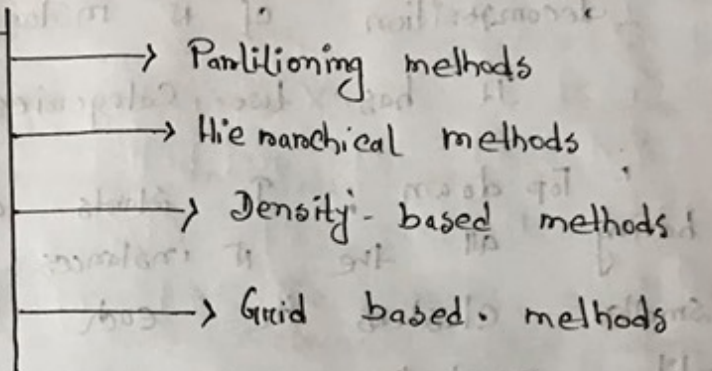 → Partitioning methods
→ Hierarchical methods
→ Density-based methods
→ Grid based. methods